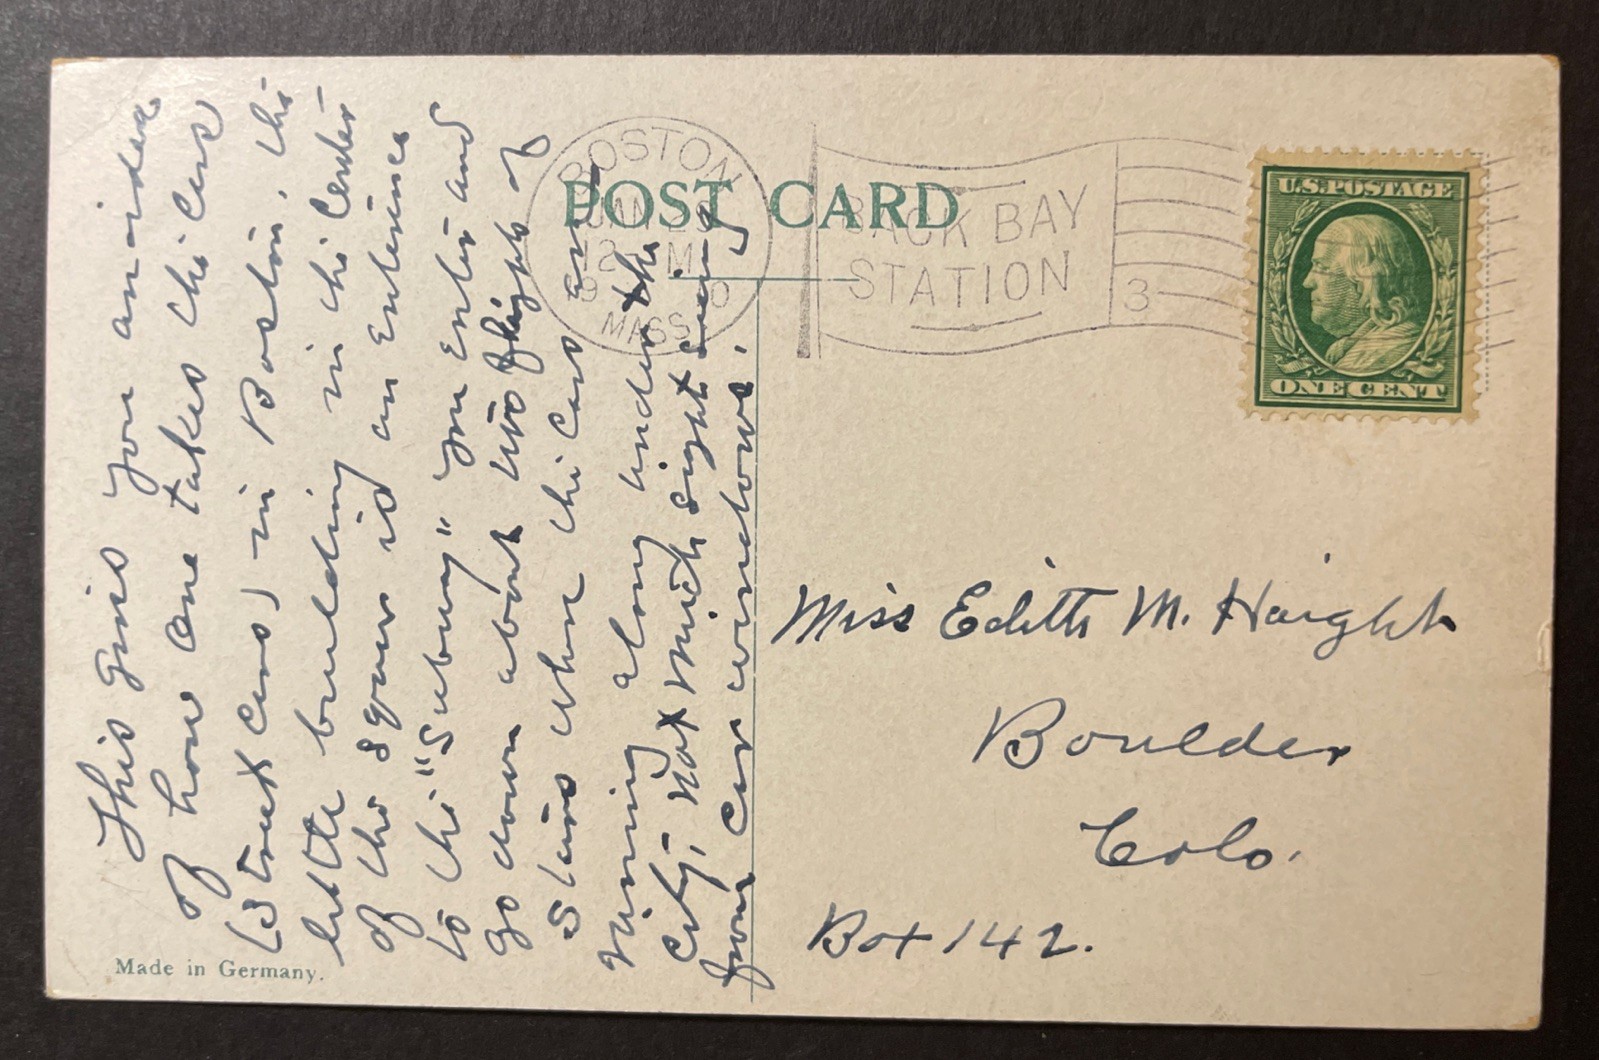 POST CARD
BOSTON
JAN
12 M
MASS.
BACK BAY
STATION
3
U.S. POSTAGE
ONE CENT
This gives you an idea
of how one takes the cars
(street cars) in Boston, the
little building in the center
of the square is an entrance
to the "Subway" you enter and
go down about two flights of
stairs where the cars are
running along under the
city, not much sight seeing
from car windows.
Miss Edith M. Haight
Boulder
Colo.
Box 142.
Made in Germany.